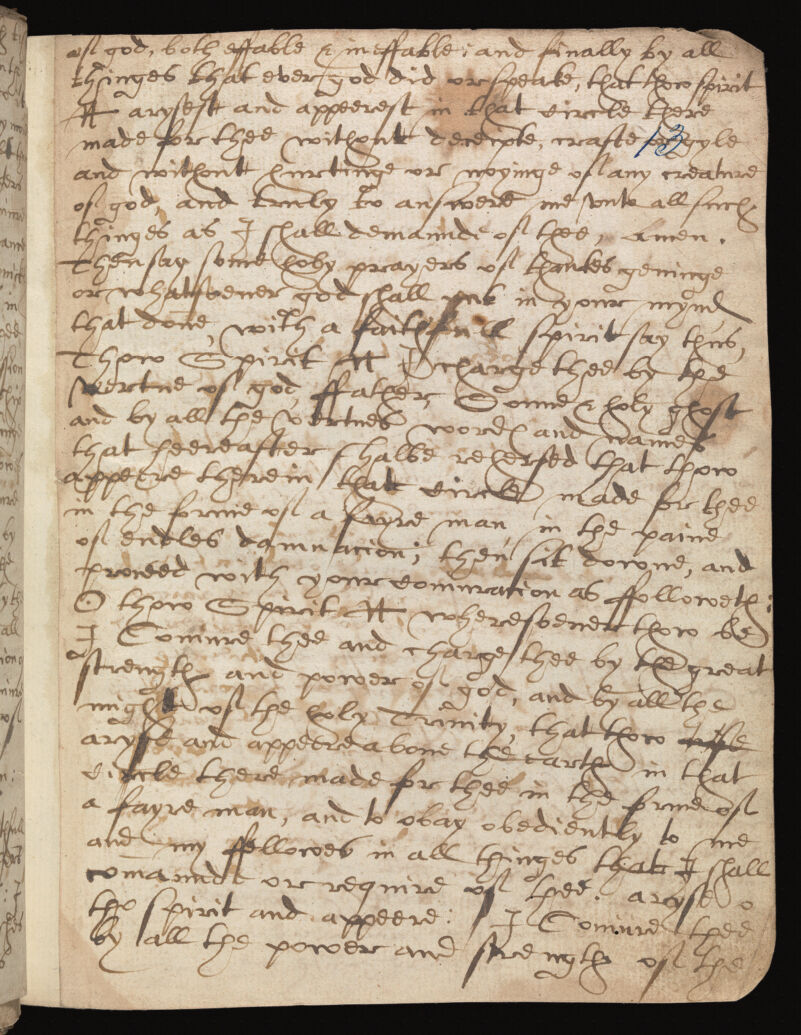 of god, both effable & ineffable; and finally by all
thinges that ever god did or speake, that thow spirit
N arysest and appeerest in that circle there
made for thee without deceipte, crafte or gyle
13
and without hurtinge or noyinge of any creature
of god, and truly to answere me unto all such
thinges as I shall demaunde of thee, Amen.
Then say some holy prayers of thankes gevinge
or whatsoever god shall put in your mynd
that done, with a faithfull spirit say thus,
Thow Spirit N I charge thee by the
vertue of god, ffather, Sonne & holy ghost
and by all the vertues wordes and names
that heereafter shalbe rehersed that thow
appeere therein that circle made for thee
in the forme of a fayre man, in the paine
of endles damnacion; then sit downe, and
proceed with your coniuracion as ffolloweth:
O thow Spirit N wheresoever thow be
I Coniure thee and charge thee by the great
strength and power of god, and by all the
might of the holy Trinity, that thow
aryse and appeere above the earth in that
circle there made for thee in the forme of
a fayre man, and to obay obediently to me
and my ffellowes in all thinges that I shall
comaunde or require of thee. aryse o
tho spirit and appeere: I Coniure thee
by all the power and strength of the